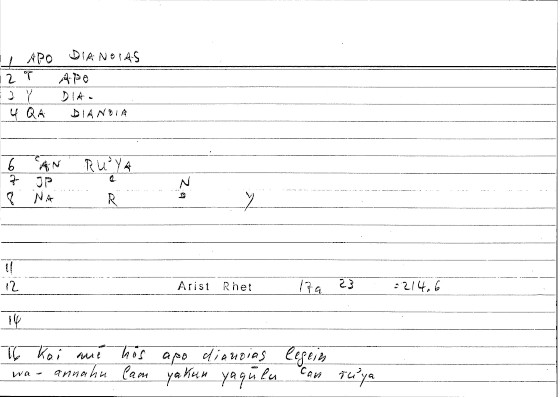 1 APO DIANOIAS
2 T APO
3 Y DIA-
4 QA DIANOIA
6 ʿAN RUʾYA
7 JP ʿ N
8 NA R ʾ Y
11
12 Arist Rhet 17a 23 =214.6
14
16 Kai mē hōs apo dianoias legein
wa-annahu lam yakun yaqūlu ʿan ruʾya